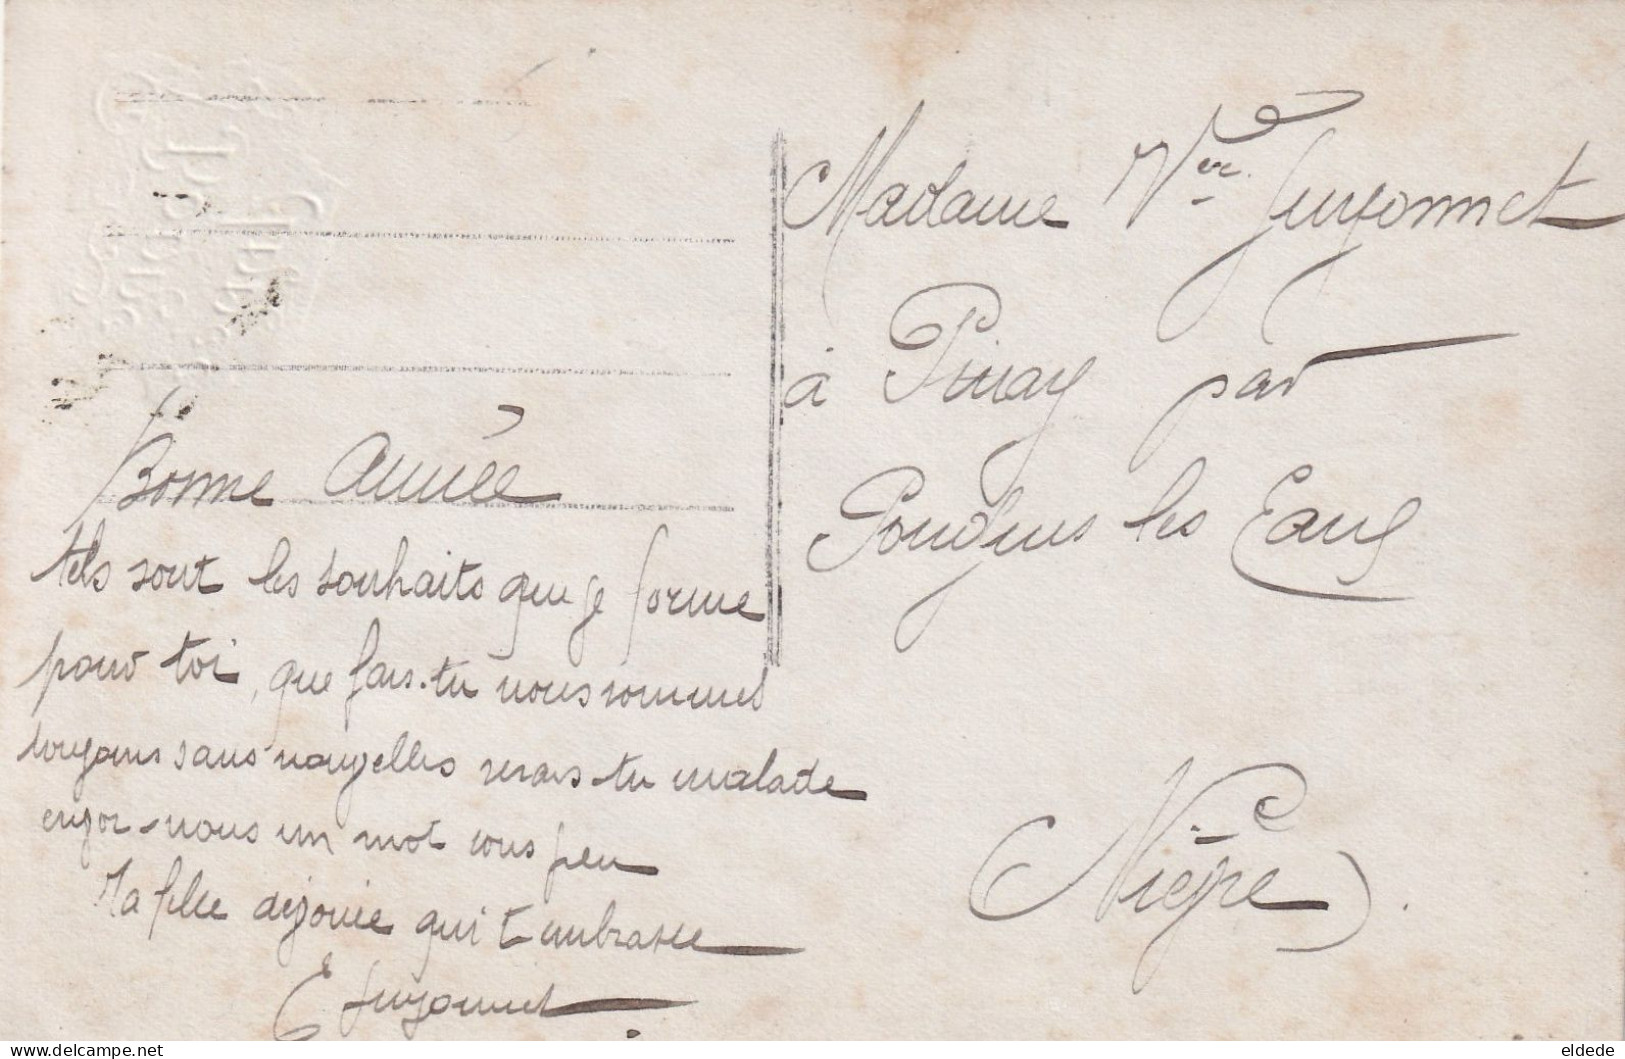 Bonne Année
tels sont les souhaits que je forme
pour toi, que fais-tu nous sommes
toujours sans nouvelles serais-tu malade
envoi-nous un mot sous peu
Ta fille dévouée qui t'embrasse
E Guyonnet
Madame Vve Guyonnet
à Pinay par
Pougues les Eaux
(Nièvre).
eldede